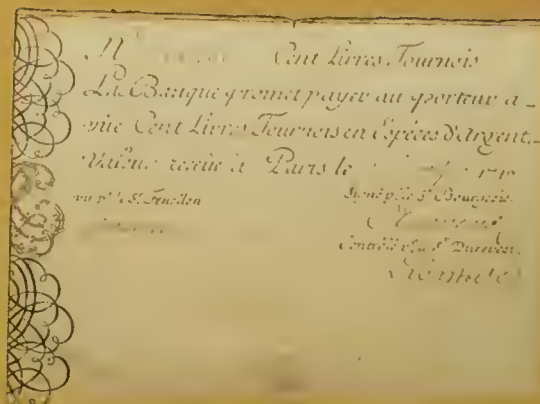 N Cent Livres Tournois
La Banque promet payer au porteur a
vüe Cent Livres Tournois en Especes d'Argent,
Valeur receüe à Paris le
vu p.r le S.r Fenellon
Signé p.r le S.r Bourgeois.
Controllé p.r le S.r Durevest.